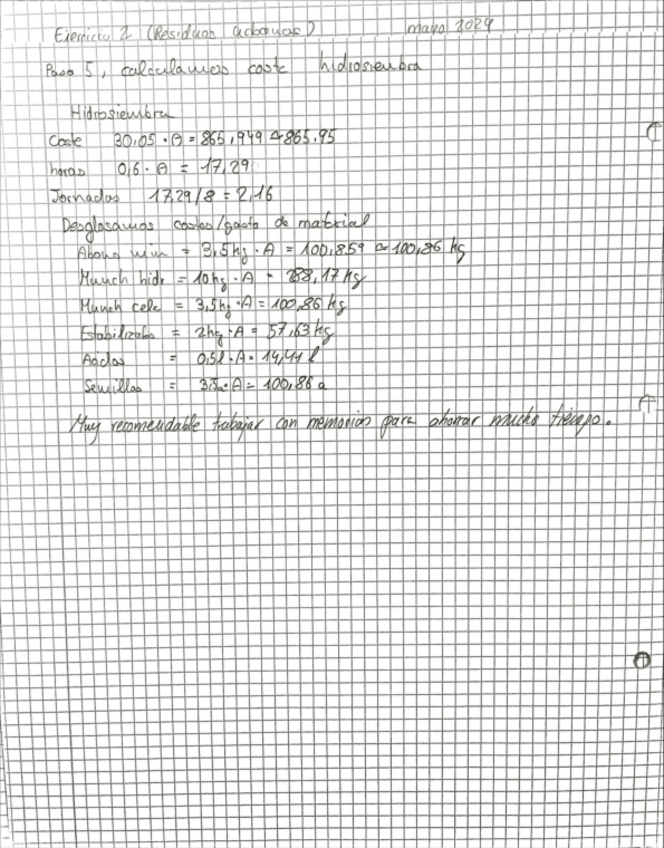 Ejercicio 2 (Residuos urbanos) mayo 2024
Paso 5, calculamos coste hidrosiembra
Hidrosiembra
Coste 30,05 · A = 865,949 ≃ 865.95
horas 0,6 · A = 17,29
Jornadas 17,29/8 = 2,16
Desglosamos costes/gasto de material
Abono min = 3,5kg · A = 100,859 ≃ 100,86 kg
Munch hidr = 10kg · A = 288,17 kg
Munch celc = 3,5kg · A = 100,86 kg
Estabilizado = 2kg · A = 57,63 kg
Acidos = 0,5l · A = 14,41 l
Semillas = · A = 100,86 a
Muy recomendable trabajar con memorias para ahorrar mucho tiempo.